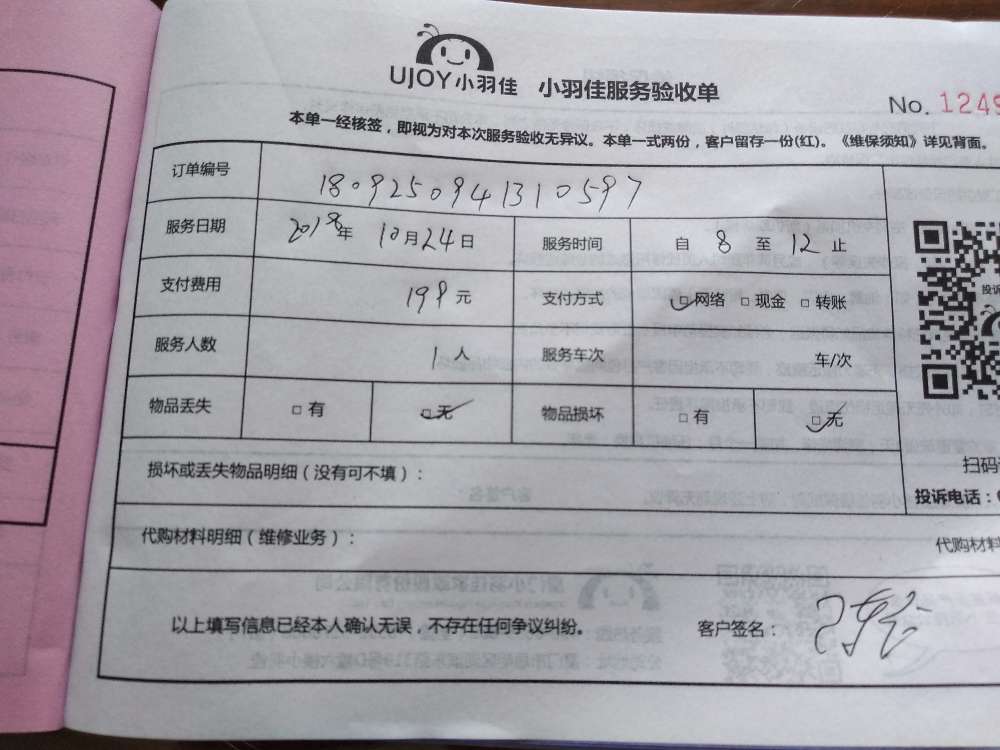 UJOY小羽佳 小羽佳服务验收单
No. 1249
本单一经核签，即视为对本次服务验收无异议。本单一式两份，客户留存一份(红)。《维保须知》详见背面。
订单编号 1809250941310597
服务日期 2018年 10月24日 服务时间 自 8 至 12 止
支付费用 198元 支付方式 □网络 □现金 □转账
投诉
服务人数 1人 服务车次 车/次
物品丢失 □有 □无 物品损坏 □有 □无
扫码
损坏或丢失物品明细（没有可不填）：
投诉电话：
代购材料明细（维修业务）： 代购材料
以上填写信息已经本人确认无误，不存在任何争议纠纷。 客户签名：